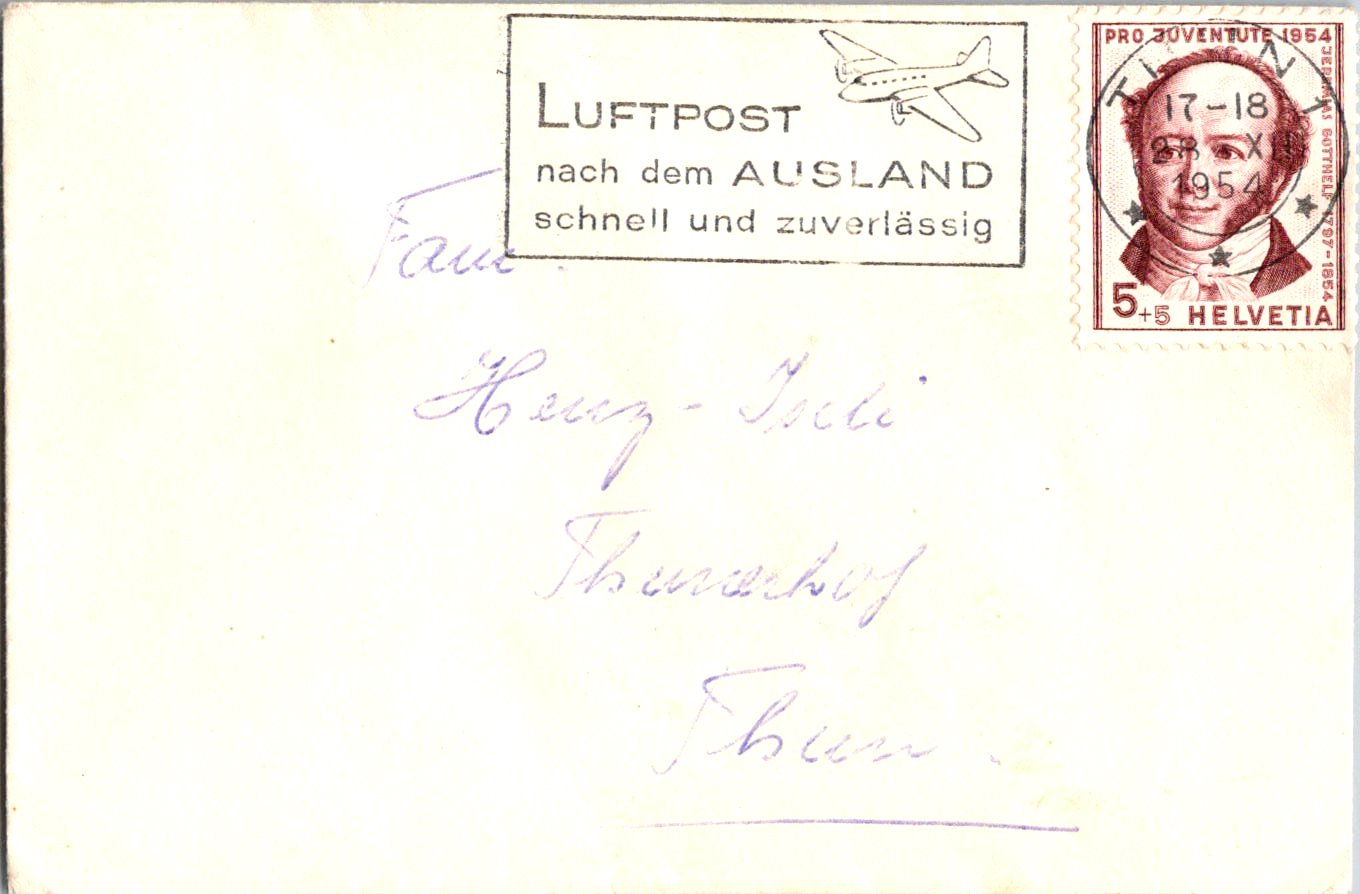 LUFTPOST
nach dem AUSLAND
schnell und zuverlässig
PRO JUVENTUTE 1954
JEREMIAS GOTTHELF 1797-1854
5+5 HELVETIA
THUN 1
17-18
28. XII
1954
Fam.
Henz-Iseli
Thunerhof
Thun.